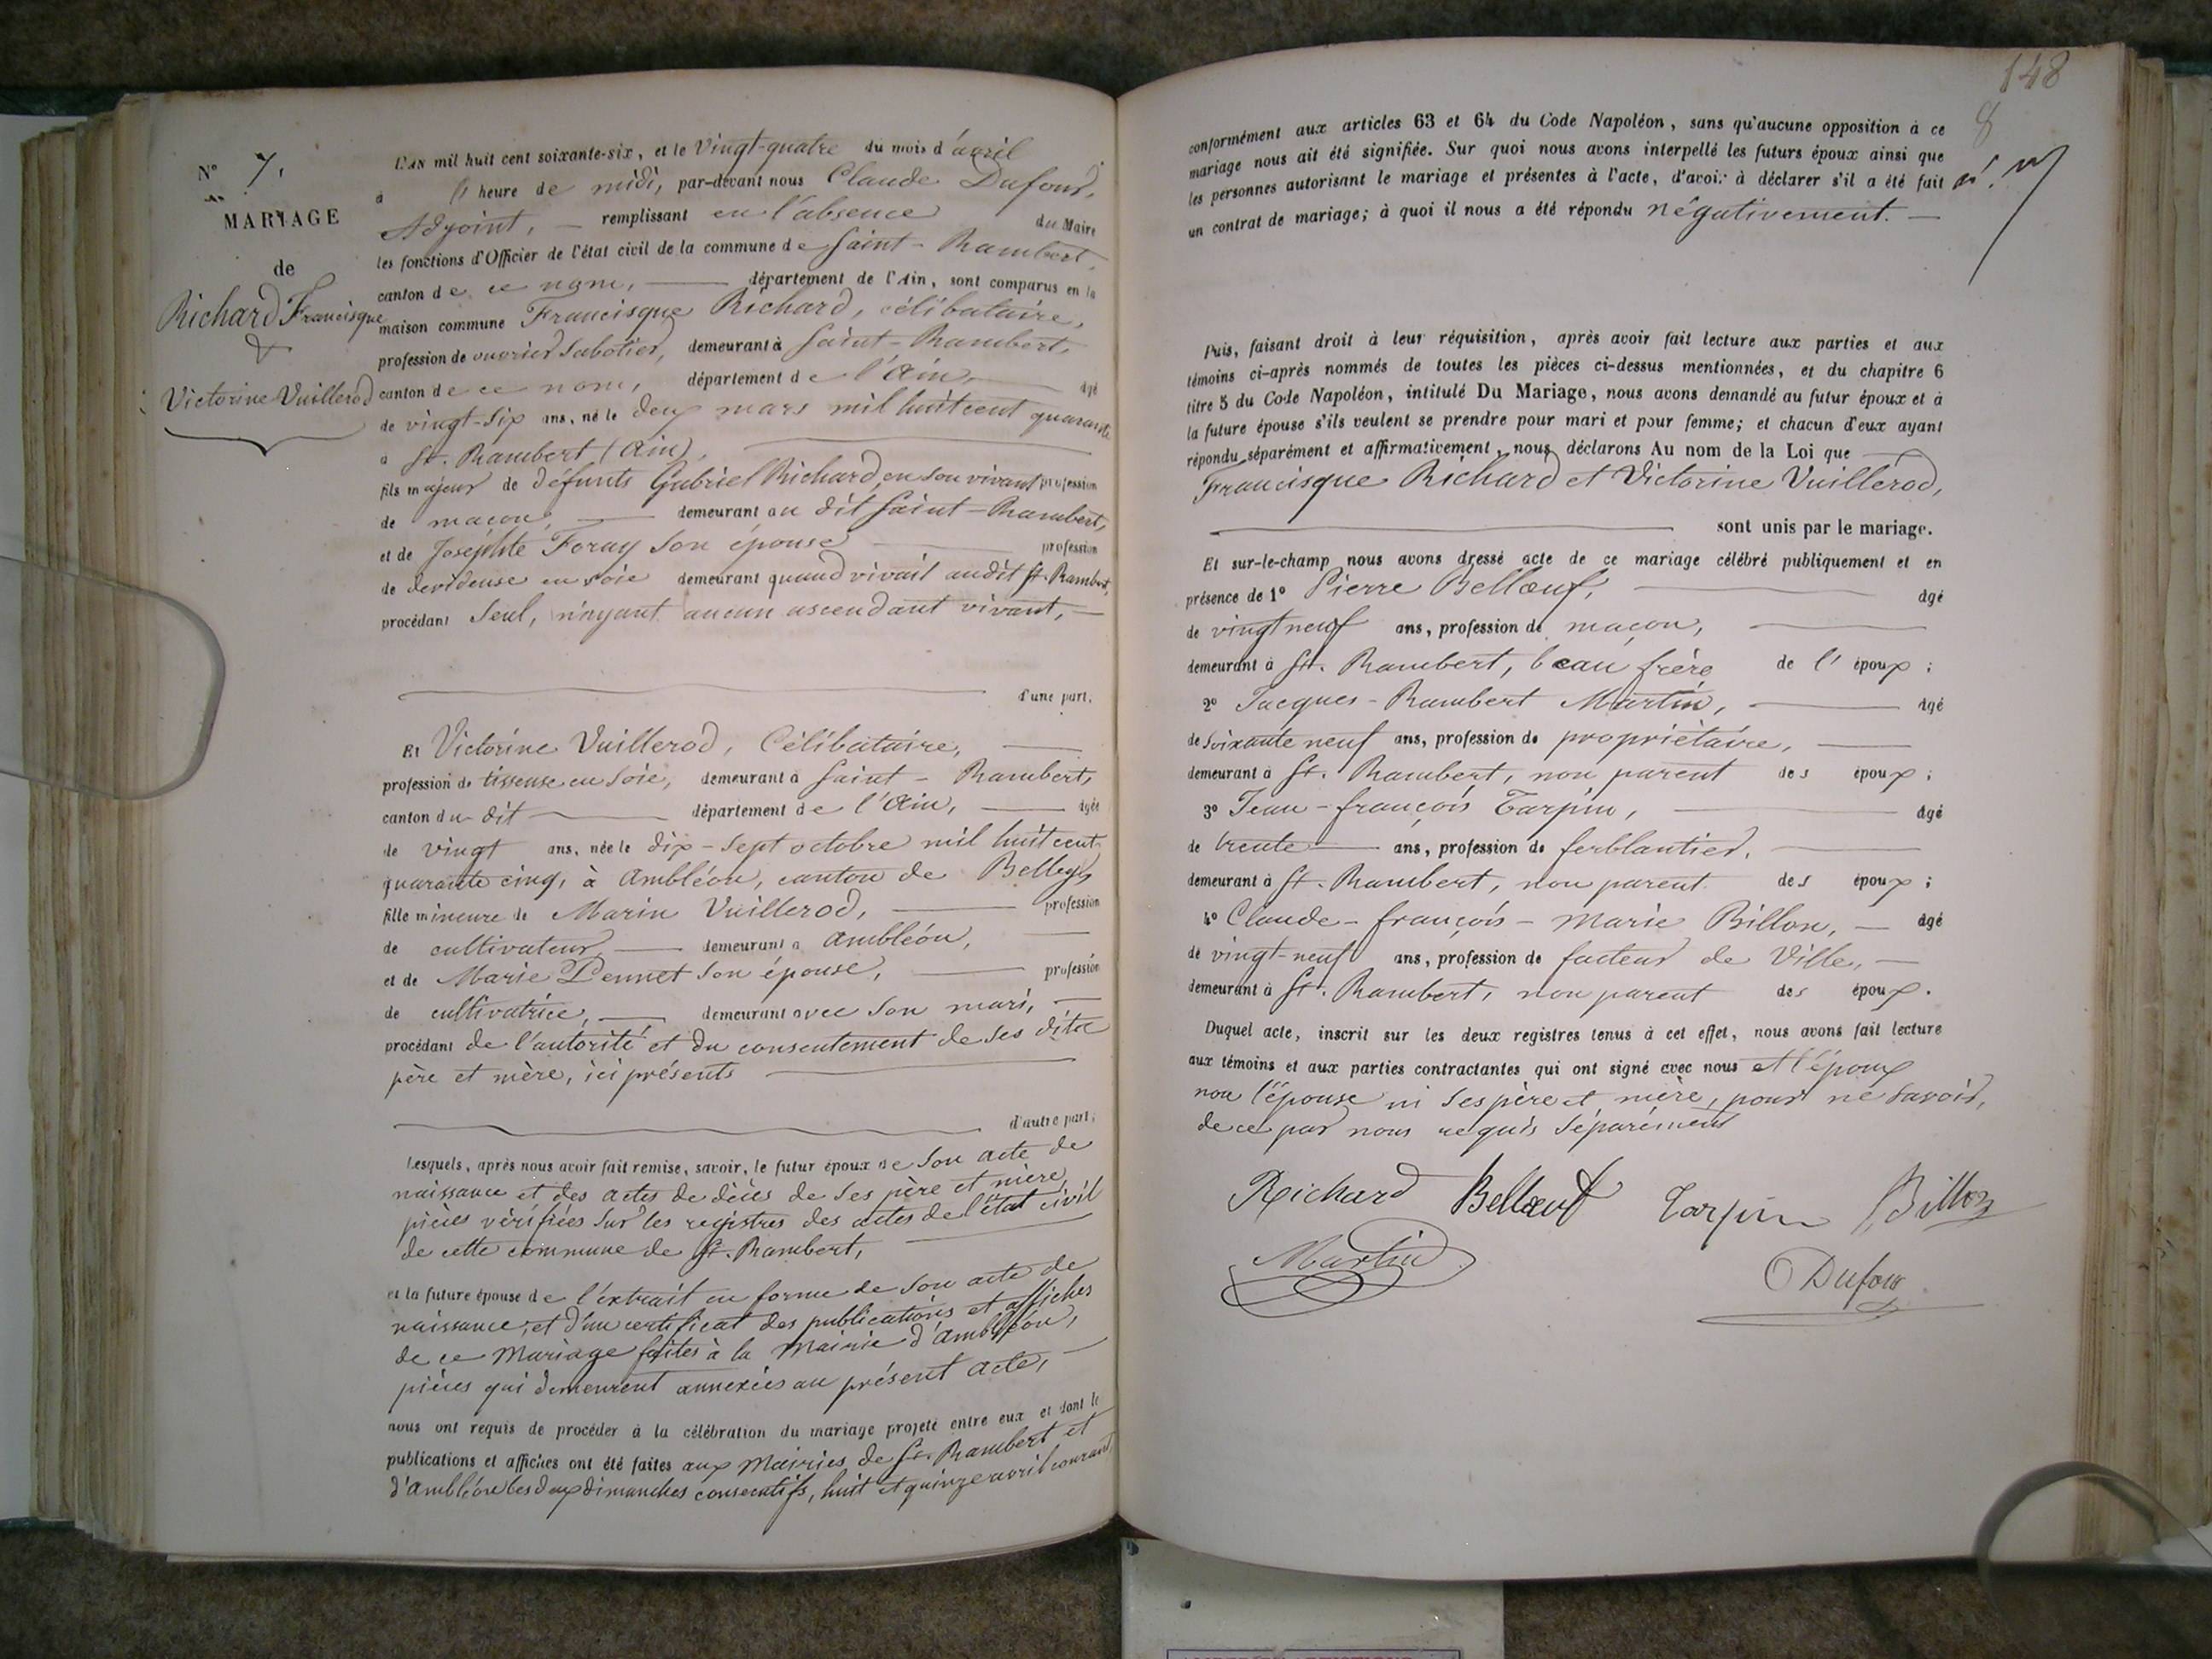 N° 7.
MARIAGE
de
Richard Francisque
&
Victorine Vuillerod
L'an mil huit cent soixante-six, et le Vingt-quatre du mois d'avril
à l' heure de midi, par-devant nous Claude Dufour,
Adjoint, — remplissant en l'absence du Maire
les fonctions d'Officier de l'état civil de la commune de Saint-Rambert,
canton de ce nom, — département de l'Ain, sont comparus en la
maison commune Francisque Richard, célibataire,
profession de ouvrier sabotier, demeurant à Saint-Rambert,
canton de ce nom, département de l'Ain, — âgé
de vingt-six ans, né le deux mars mil huit cent quarante
à St. Rambert (Ain),
fils majeur de défunts Gabriel Richard, en son vivant profession
de maçon, — demeurant au dit Saint-Rambert,
et de Josephte Feray son épouse — profession
de devideuse en soie demeurant quand vivait audit St. Rambert,
procédant seul, n'ayant aucun ascendant vivant, —
d'une part.
Et Victorine Vuillerod, Célibataire, —
profession de tisseuse en soie, demeurant à Saint-Rambert,
canton du dit — département de l'Ain, — âgée
de vingt ans, née le dix-sept octobre mil huit cent
quarante cinq, à Ambléon, canton de Belley,
fille mineure de Marin Vuillerod, — profession
de cultivateur — demeurant à Ambléon, —
et de Marie Pennet son épouse, — profession
de cultivatrice, — demeurant avec son mari, —
procédant de l'autorité et du consentement de ses dits
père et mère, ici présents —
d'autre part,
Lesquels, après nous avoir fait remise, savoir, le futur époux de son acte de
naissance et des actes de décès de ses père et mère,
pièces vérifiées sur les registres des actes de l'état civil
de cette commune de St. Rambert, —
et la future épouse de l'extrait en forme de son acte de
naissance, et d'un certificat des publications et affiches
de ce mariage faites à la mairie d'Ambléon,
pièces qui demeurent annexées au présent acte, —
nous ont requis de procéder à la célébration du mariage projeté entre eux et dont le
publications et affiches ont été faites aux mairies de St. Rambert et
d'Ambléon les deux dimanches consecutifs, huit et quinze avril courant
148
8
conformément aux articles 63 et 64 du Code Napoléon, sans qu'aucune opposition à ce
mariage nous ait été signifiée. Sur quoi nous avons interpellé les futurs époux ainsi que
les personnes autorisant le mariage et présentes à l'acte, d'avoir à déclarer s'il a été fait
un contrat de mariage; à quoi il nous a été répondu négativement. —
Puis, faisant droit à leur réquisition, après avoir fait lecture aux parties et aux
témoins ci-après nommés de toutes les pièces ci-dessus mentionnées, et du chapitre 6
titre 5 du Code Napoléon, intitulé Du Mariage, nous avons demandé au futur époux et à
la future épouse s'ils veulent se prendre pour mari et pour femme; et chacun d'eux ayant
répondu séparément et affirmativement, nous déclarons Au nom de la Loi que —
Francisque Richard et Victorine Vuillerod,
— sont unis par le mariage.
Et sur-le-champ nous avons dressé acte de ce mariage célébré publiquement et en
présence de 1° Pierre Bellœuf, — âgé
de vingt neuf ans, profession de maçon, —
demeurant à St. Rambert, beau frère de l' époux ;
2° Jacques-Rambert Martin, — âgé
de soixante neuf ans, profession de propriétaire, —
demeurant à St. Rambert, non parent des époux ;
3° Jean-françois Tarpin, — âgé
de trente — ans, profession de ferblantier, —
demeurant à St. Rambert, non parent des époux ;
4° Claude-françois-Marie Billon, — âgé
de vingt-neuf ans, profession de facteur de Ville, —
demeurant à St. Rambert, non parent des époux.
Duquel acte, inscrit sur les deux registres tenus à cet effet, nous avons fait lecture
aux témoins et aux parties contractantes qui ont signé avec nous et l'époux
non l'épouse ni ses père et mère, pour ne savoir,
de ce par nous requis séparément
Richard Bellœuf Tarpin Billon
Martin
Dufour